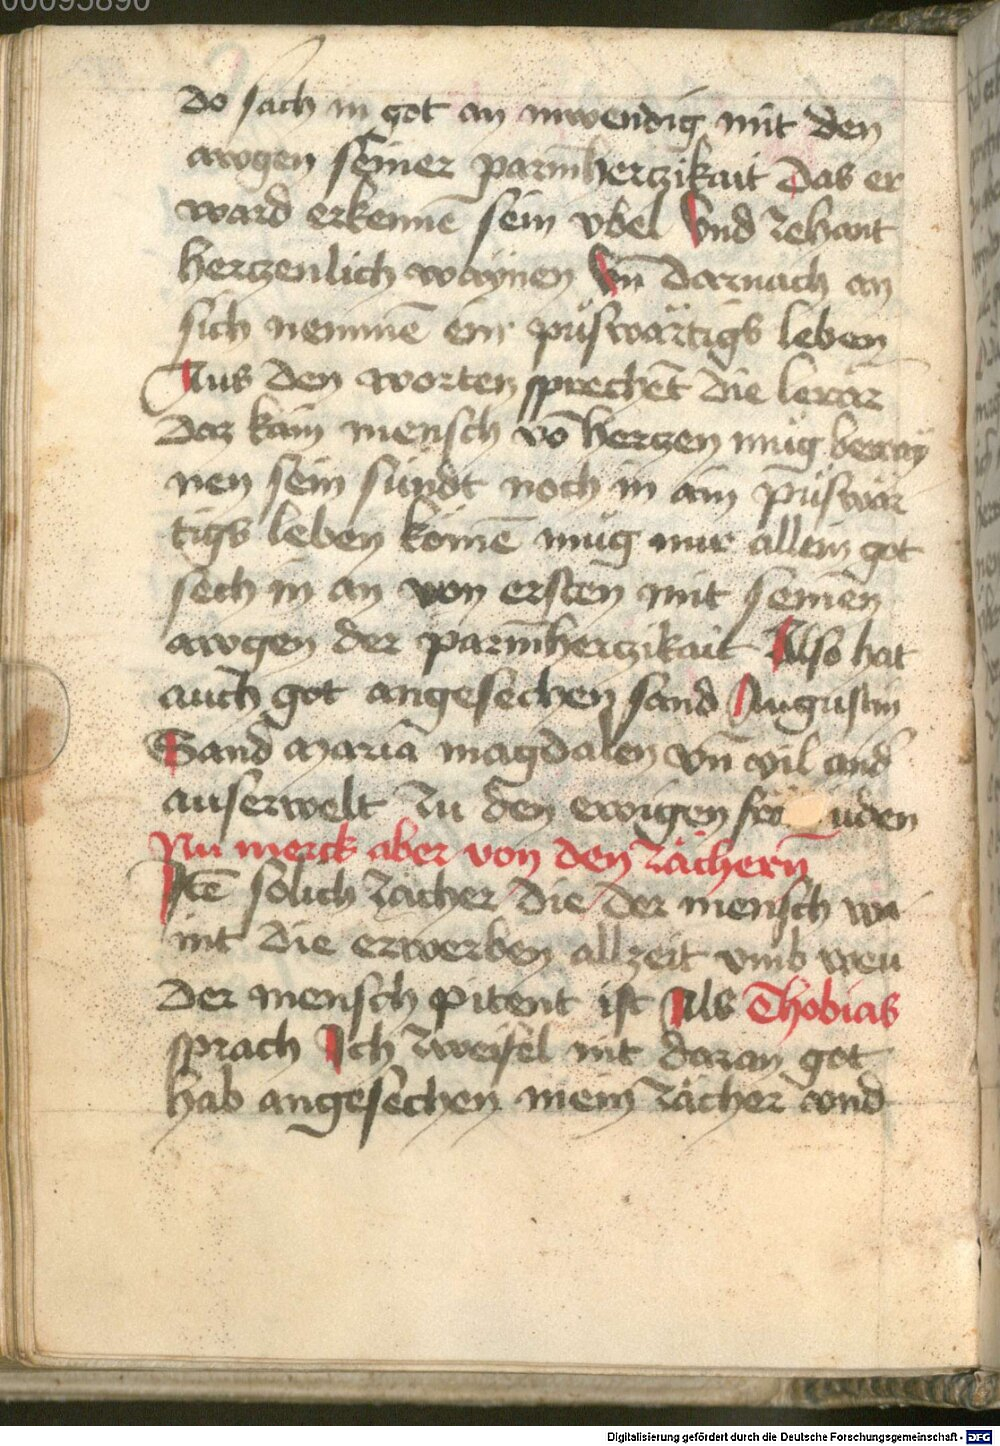 00095890
do sach in got an inwendig mit den
awgen seiner parm̄hertzikait Das er
ward erkennē sein vbel Vnd zehant
hertzenlich waynen Vn̄ darnach an
sich nemmē ein püswärtigs leben
Aus den worten sprechēt die lerär
Daz kain mensch vō hertzen müg beway
nen sein sündt noch in ain püswär
tigs leben kömē müg nur allein got
sech in an von ersten mit seinen
awgen der parm̄hertzikait Also hat
auch got angesechen sand Augustin
Sand maria magdalen vn̄ vil and
auserwelt zu den ewigen frö uden
Nu merck aber von den zächern̄
Itē solich zächer die der mensch wa
int die erwerben allzeit vmb weu
der mensch pitent ist Als Thobias
sprach Ich zweifel nit daran got
hab angesechen mein zächer vnd
Digitalisierung gefördert durch die Deutsche Forschungsgemeinschaft - DFG